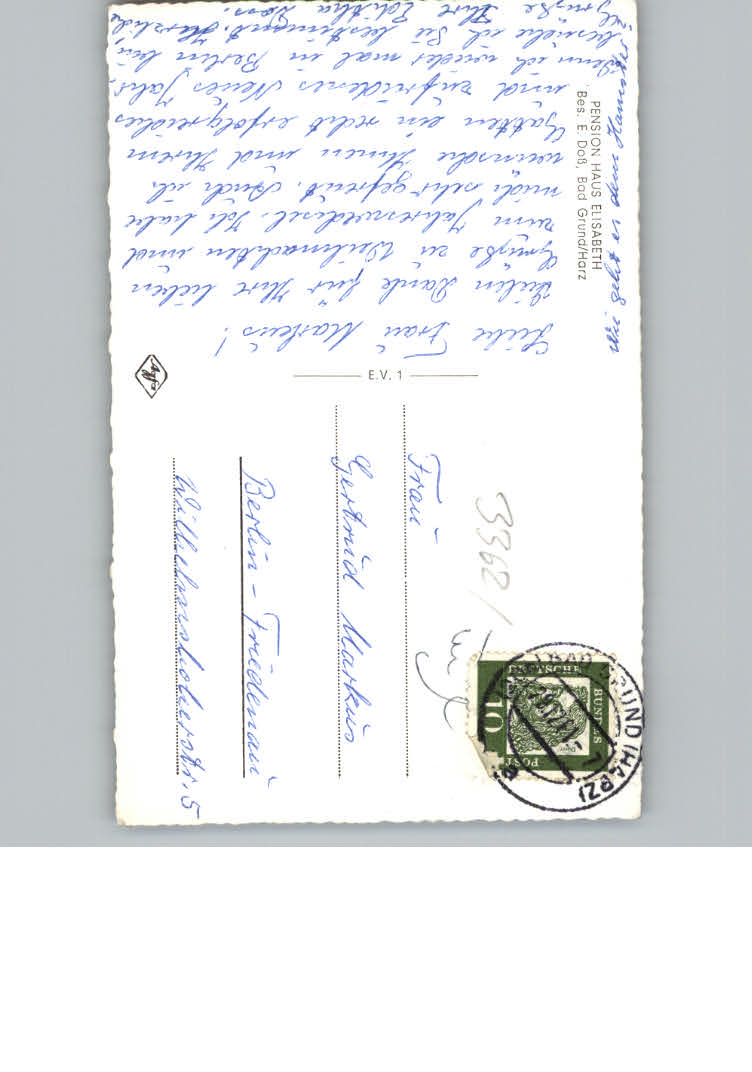 PENSION HAUS ELISABETH
Bes. E. Doß, Bad Grund/Harz
Liebe Frau Markus!
Vielen Dank für Ihre lieben
Grüße zu Weihnachten und
zum Jahreswechsel. Ich habe
mich sehr gefreut. Auch ich
wünsche Ihnen und Ihrem
Gatten ein recht erfolgreiches
und zufriedenes Neues Jahr.
Wenn ich wieder mal in Berlin bin
besuche ich Sie bestimmt. Herzliche
Grüße Ihre Editha
Wie geht es dem
E.V. 1
Agfa
Frau
Gertrud Markus
Berlin - Friedenau
Wilhelmshöherstr. 5
3362
DEUTSCHE
BUNDES
POST
10
BAD GRUND (HARZ)